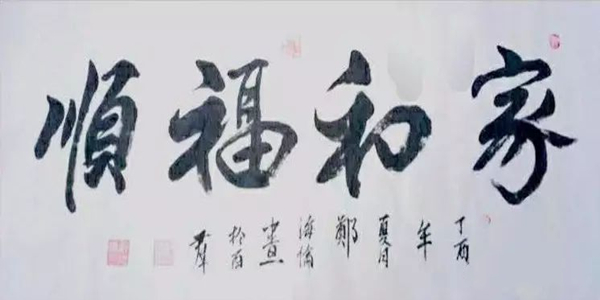 家和福順
丁酉年夏月鄭海倫書於百群